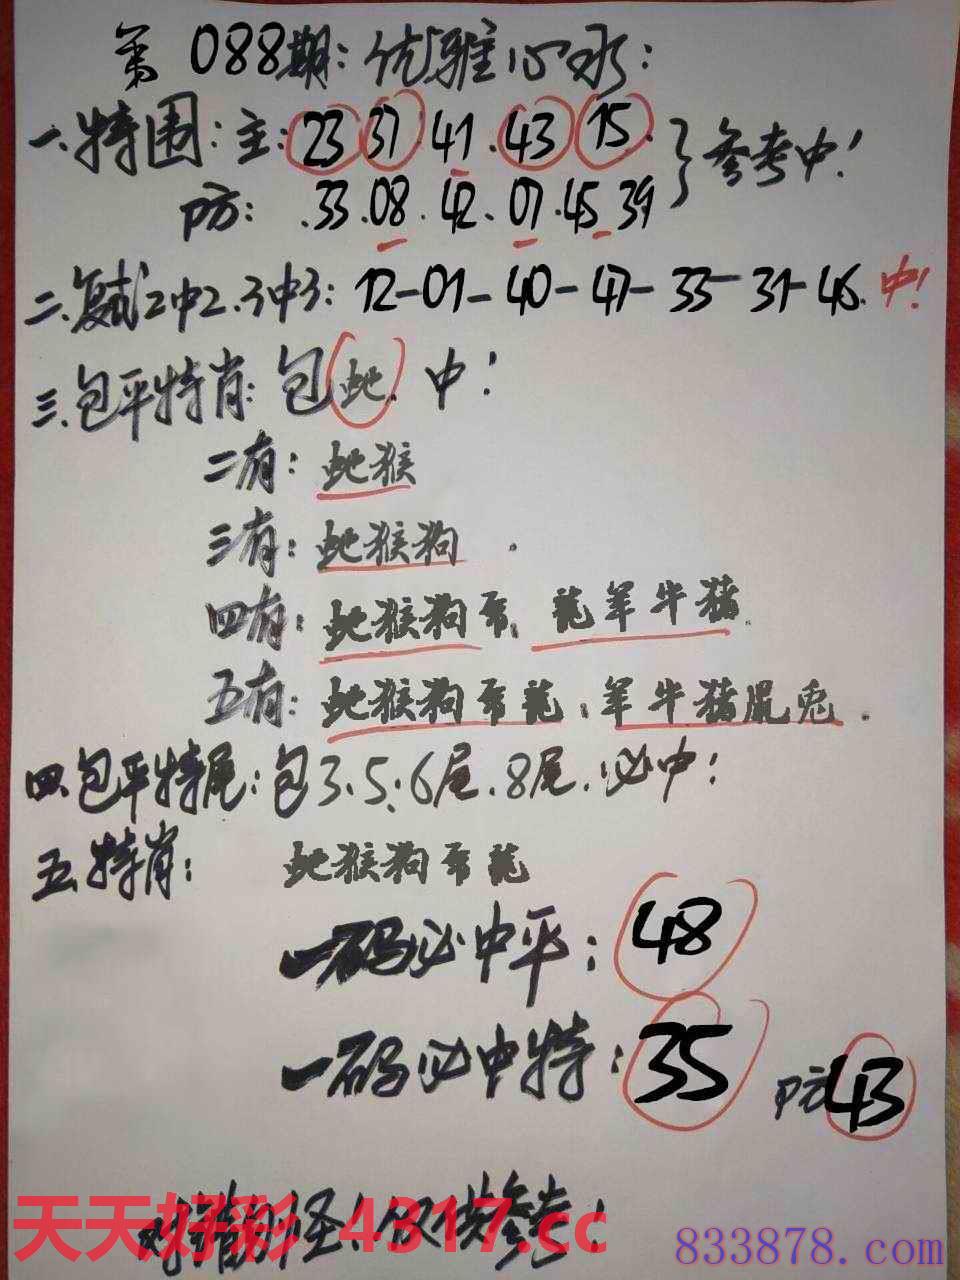 第088期:优雅心水:
一.特围:主:23 37.41.43 15. }参考中!
防:.33.08.42.07.45 39
二.复式2中2.3中3:12-01-40-47-33-31-46.中!
三.包平特肖:包蛇.中!
二有:蛇猴
三有:蛇猴狗.
四有:蛇猴狗 龍羊牛猪.
五有:蛇猴狗 龍.羊牛猪鼠兎.
四.包平特尾:包3.5.6尾.8尾.必中!
五.特肖:蛇猴狗 龍
一码必中平:48
一码必中特:35 防43
天天好彩 4317.cc
仅供参考!
833878.com